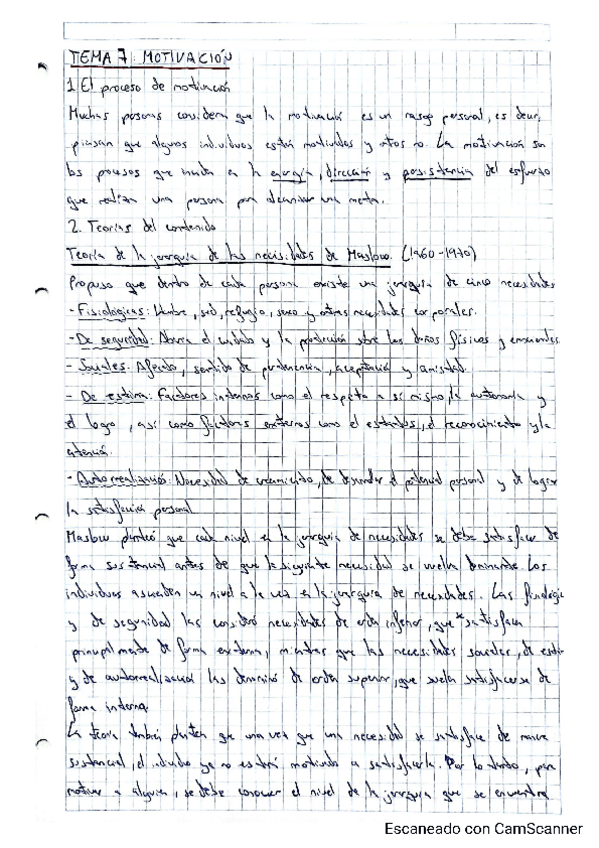 TEMA 7: MOTIVACIÓN
1. El proceso de motivación
Muchas personas consideran que la motivación es un rasgo personal, es decir,
piensan que algunos individuos están motivados y otros no. La motivación son
los procesos que inciden en la energía, dirección y persistencia del esfuerzo
que realiza una persona por alcanzar una meta.
2. Teorías del contenido
Teoría de la jerarquía de las necesidades de Maslow. (1960-1970)
Propuso que dentro de cada persona existe una jerarquía de cinco necesidades
- Fisiológicas: Hambre, sed, refugio, sexo y otras necesidades corporales.
- De seguridad: Abarca el cuidado y la protección sobre los daños físicos y emocionales.
- Sociales: Afecto, sentido de pertenencia, aceptación y amistad.
- De estima: Factores internos como el respeto a sí mismo, la autonomía y
el logro, así como factores externos como el estatus, el reconocimiento y la
atención.
- Autorrealización: Necesidad de crecimiento, de desarrollar el potencial personal y de lograr
la satisfacción personal
Maslow planteó que cada nivel en la jerarquía de necesidades se debe satisfacer de
forma sustancial antes de que la siguiente necesidad se vuelva dominante. Los
individuos ascienden un nivel a la vez en la jerarquía de necesidades. Las fisiológic
y de seguridad las consideró necesidades de orden inferior, que satisfacen
principalmente de forma externa, mientras que las necesidades sociales, de estim
y de autorrealización las denominó de orden superior, que suelen satisfacerse de
forma interna.
La teoría también plantea que una vez que una necesidad se satisface de manera
sustancial, el individuo ya no estará motivado a satisfacerla. Por lo tanto, para
motivar a alguien, se debe conocer el nivel de la jerarquía que se encuentra
Escaneado con CamScanner